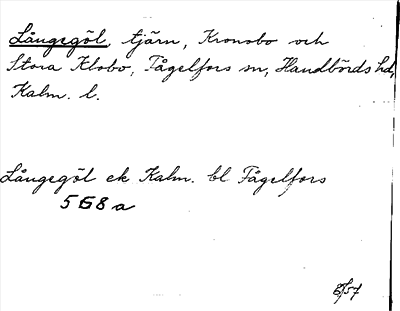 Långegöl, tjärn, Kronobo och
Stora Klobo, Fågelfors sn, Handbörds hd,
Kalm. l.
Långegöl ek Kalm. bl Fågelfors
568 a